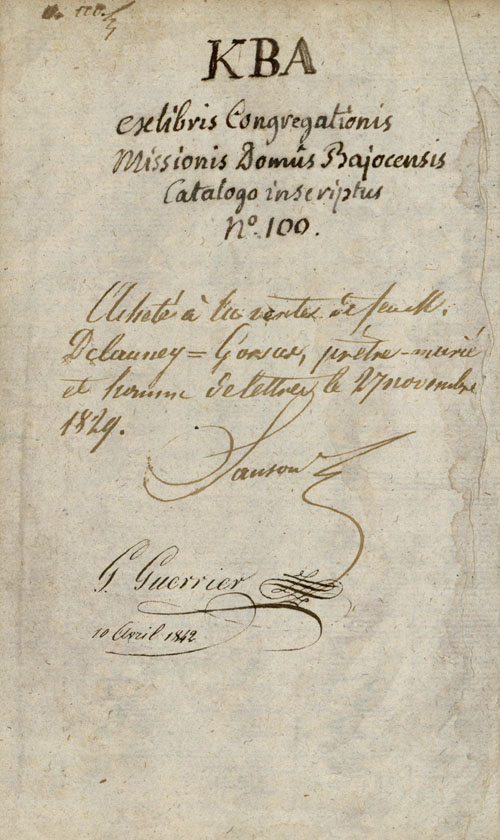 KBA
exlibris Congregationis
Missionis Domûs Bajocensis
Catalogo inscriptus
Nº. 100.
Acheté à la vente de feu M.
Delauney = Gorsas, prêtre-marié
et homme de lettres le 27 novembre
1829.
Sanson
G. Guerrier
10 Avril 1842